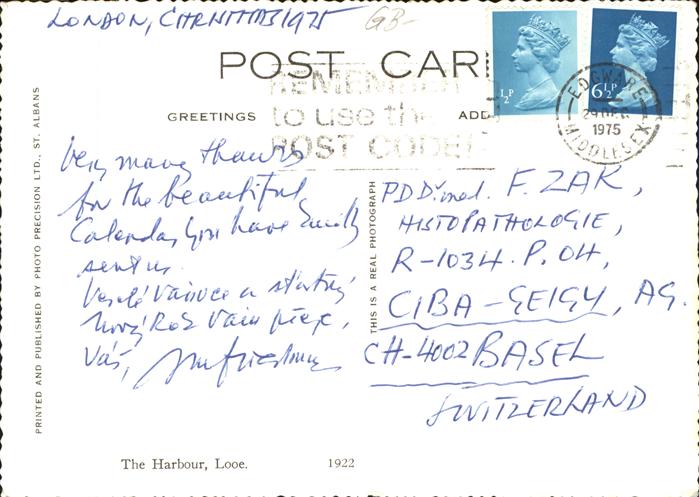 LONDON, CHRISTMAS 1975
GB-
POST CAR
REMEMBER
to use the
POST CODE!
GREETINGS
ADD
½P
6½P
EDGWARE
MIDDLESEX
29 DEC
1975
Very many thanks
for the beautiful
Calendar you have kindly
sent us.
Veselé Vánoce a šťastný
Nový Rok Vám přeje,
Váš,
PD Dr. med. F. ZAK,
HISTOPATHOLOGIE,
R-1034. P. 04,
CIBA-GEIGY, AG.
CH-4002 BASEL
SWITZERLAND
THIS IS A REAL PHOTOGRAPH
PRINTED AND PUBLISHED BY PHOTO PRECISION LTD., ST. ALBANS
The Harbour, Looe.
1922